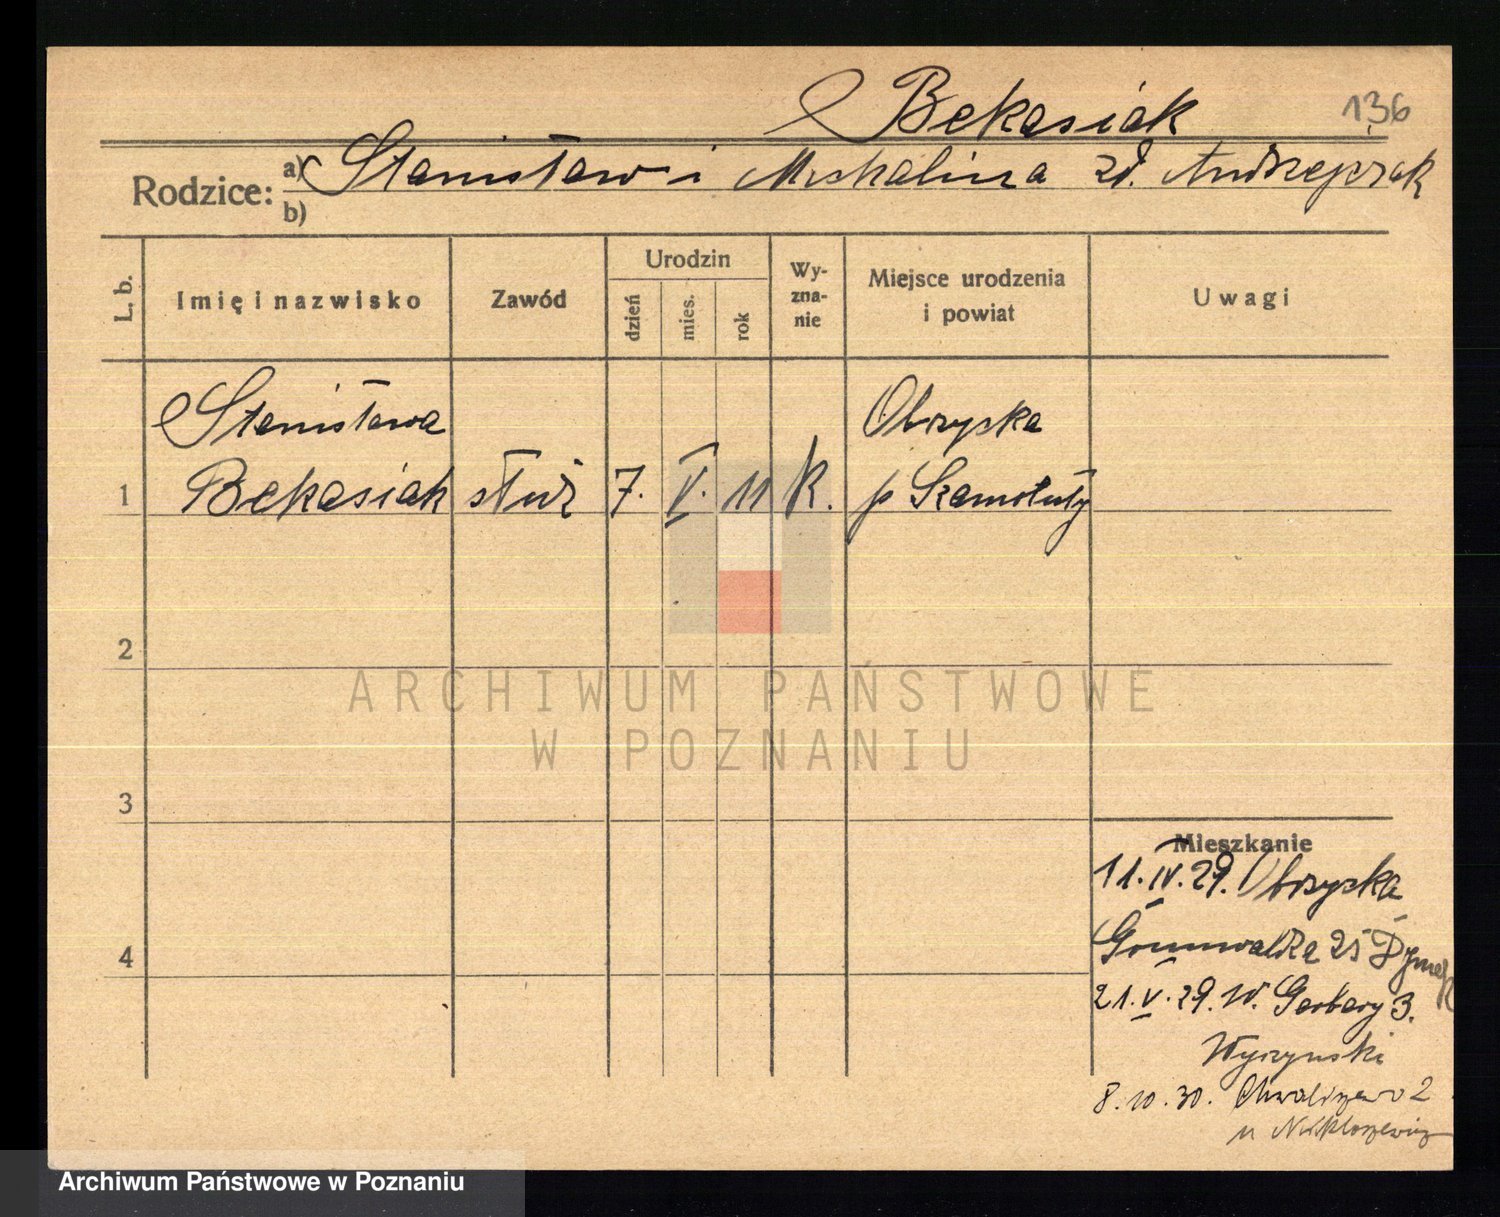 Bekasiak
136
Rodzice:
a) Stanisław i Michalina zd. Andrzejczak
b)
L. b.
Imię i nazwisko
Zawód
Urodzin
dzień
mies.
rok
Wy-
zna-
nie
Miejsce urodzenia
i powiat
Uwagi
Stanisława
Obrzycko
1 Bekasiak służ 7. V. 11 K. p Szamotuły
2
ARCHIWUM PAŃSTWOWE
W POZNANIU
3
Mieszkanie
11.IV.29. Obrzycka
4
Grunwaldzka 25
21.V.29. W. Garbary 3.
Wyrzynski
8.10.30. Chwaliszewo 2
u
Archiwum Państwowe w Poznaniu